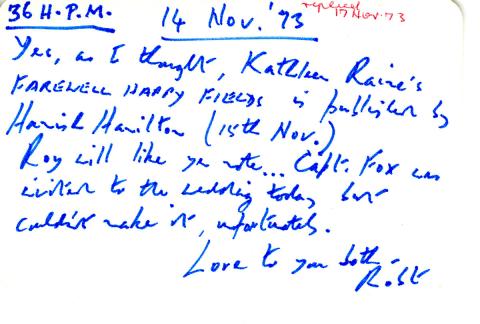 36 H.P.M. 14 Nov. '73 replied 17 NOV. 73
Yes, as I thought, Kathleen Raine's
FAREWELL HAPPY FIELDS is published by
Hamish Hamilton (15th Nov.)
Roy will like your note... Capt. Fox was
invited to the wedding today but
couldn't make it, unfortunately.
Love to you both –